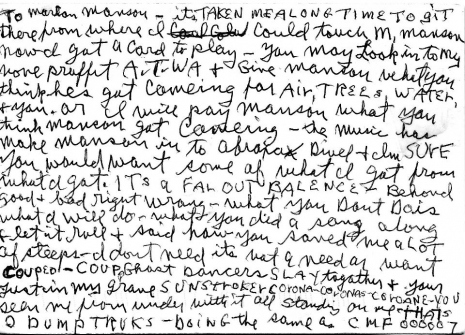 To marlon manson – it's TAKEN ME A LONG TIME TO git
there from where I could touch M, manson
now I got a card to play – You may look in to my
none proffit A.T.W.A & Give manson what you
think he's got comeing for Air, TREES, WATER,
& you. or I will pay manson what you
think manson got comeing – the music has
make manson in to abrax Divel & Im SURE
You would want some of what I got from
what I got. IT's a FAR OUT BALENCE – Behond
good & bad right wrong – what you Dont Dois
what I will do – what you did a sang along
& let it roll & said how you saved me a Lot
of steeps – I dont need it's not a need or want
couped – COUP. Ghost Dancers SLAY together & your
just in my grave SUNSTROKER CORONA-CORONAS-CORONAE-YOU
seen me from under with it all standing on me THATS
2 DUMPTRUKS – DOING the same as CMF 00000